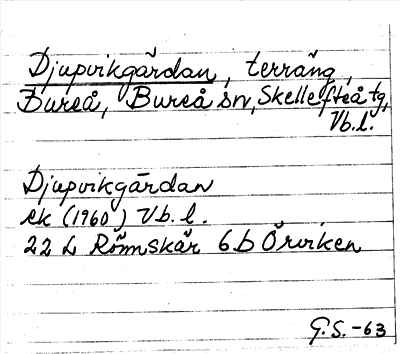 Djupvikgärdan, terräng,
Bureå, Bureå sn, Skellefteå tg,
Vb.l.
Djupvikgärdan
ek (1960) Vb. l.
22 L Rönnskär 6b Örviken
G.S.-63